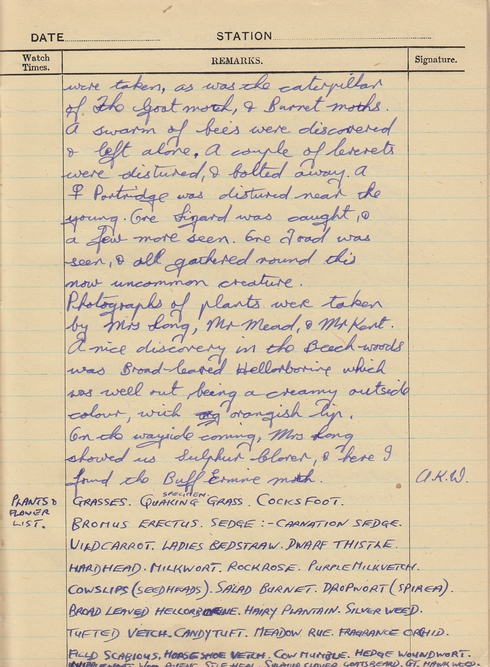 DATE STATION
Watch Times. REMARKS. Signature.
were taken, as was the caterpillar
of the Goat moth, & Burnet moths.
A swarm of bees were discovered
& left alone. A couple of leverets
were distured, & bolted away. A
♀ Partridge was distured near the
young. One lizard was caught, &
a few more seen. One Toad was
seen, & all gathered round this
now uncommon creature.
Photographs of plants were taken
by Mrs Long, Mr Mead, & Mr Kent.
A nice discovery in the Beech woods
was Broad-leared Hellorborine which
was well out, being a creamy outside
colour, with orangish lip.
On the wayside coming, Mrs Long
showed us Sulphur Clover, & here I
found the Buff Ermine moth. A.K.W.
PLANTS & FLOWER LIST.
GRASSES. QUAKING GRASS. COCKSFOOT.
SPECIMEN.
BROMUS ERECTUS. SEDGE :- CARNATION SEDGE.
WILDCARROT. LADIES BEDSTRAW. DWARF THISTLE.
HARDHEAD. MILKWORT. ROCKROSE. PURPLE MILKVETCH.
COWSLIPS (SEEDHEADS). SALAD BURNET. DROPWORT (SPIREA).
BROAD LEAVED HELLORBORINE. HAIRY PLANTAIN. SILVERWEED.
TUFTED VETCH. CANDYTUFT. MEADOW RUE. FRAGRANCE ORCHID.
FIELD SCABIOUS. HORSESHOE VETCH. COW MUMBLE. HEDGE WOUNDWORT.
AVENS. SELFHEAL. SULPHUR CLOVER. GOATSBEARD. GT. HAWKWEED.